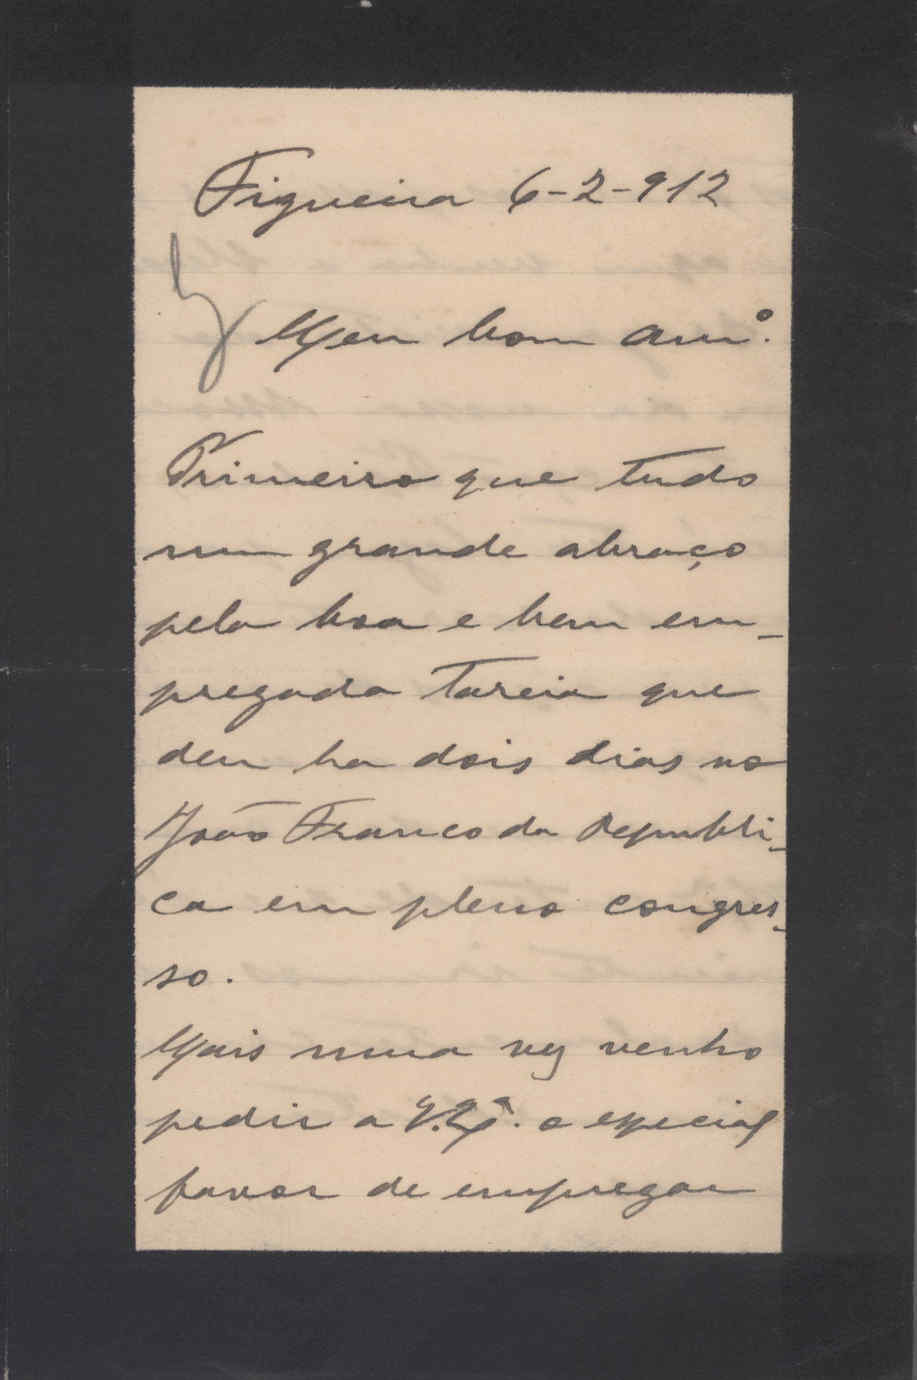 Figueira 6-2-912
Meu bom amº.
Primeiro que tudo
um grande abraço
pela boa e bem em-
pregada tareia que
deu ha dois dias no
João Franco da Republi-
ca em pleno congres-
so.
Mais uma vez venho
pedir a V. Exª. o especial
favor de empregar